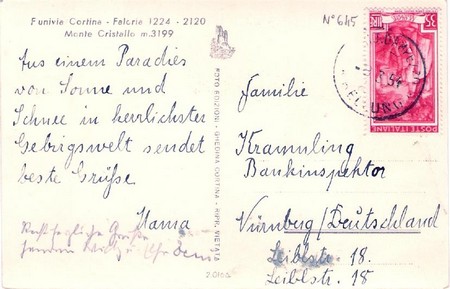 Funivie Cortina - Faloria 1224 - 2120
Monte Cristallo m. 3199
Aus einem Paradies
von Sonne und
Schnee in herrlichster
Gebirgswelt sendet
beste Grüße
Mama
FOTO EDIZIONI - GHEDINA CORTINA - RIPR. VIETATA
N° 645
35 LIRE
POSTE ITALIANE
Familie
Krannling
Bankinspektor
Nürnberg/Deutschland
Leiblstr. 18.
Leiblstr. 18